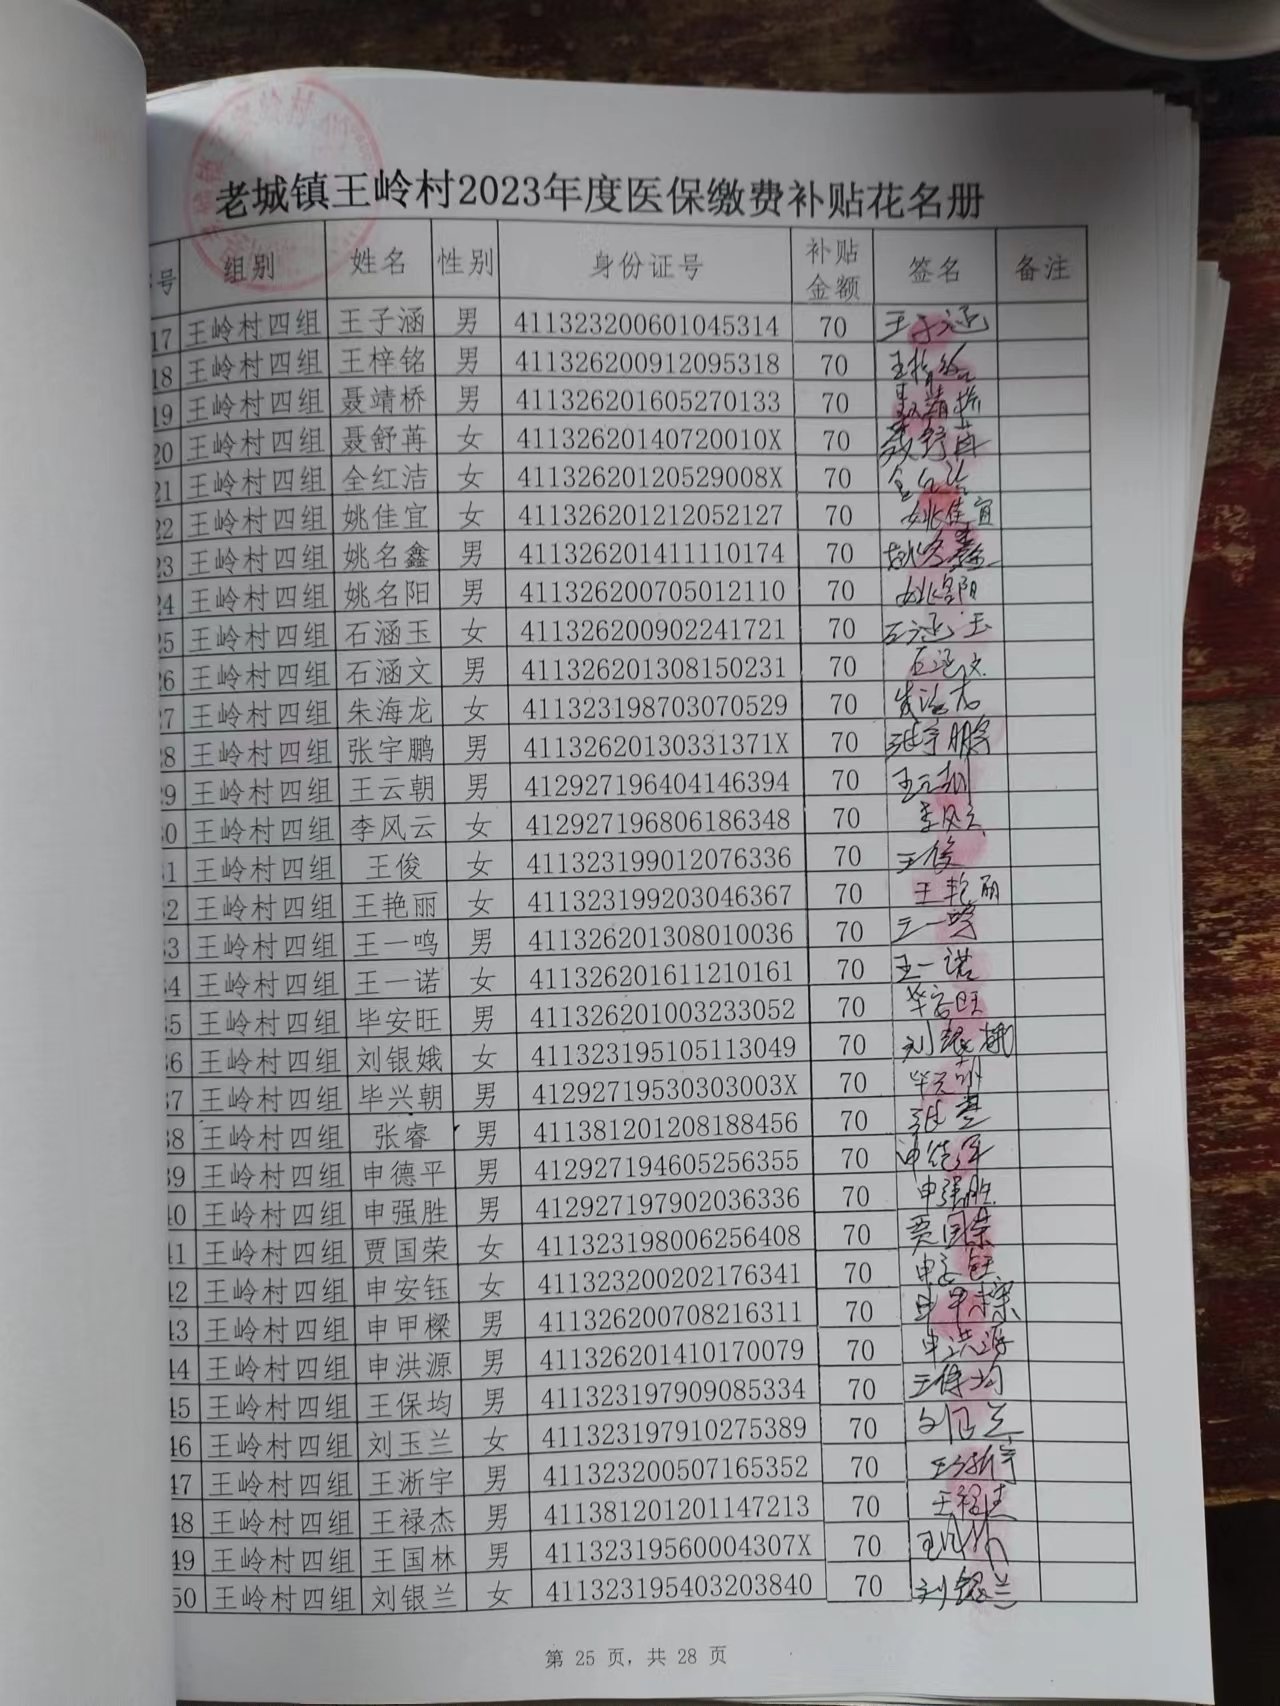 老城镇王岭村2023年度医保缴费补贴花名册
号 组别 姓名 性别 身份证号 补贴金额 签名 备注
17 王岭村四组 王子涵 男 411323200601045314 70 王子涵
18 王岭村四组 王梓铭 男 411326200912095318 70
19 王岭村四组 聂靖桥 男 411326201605270133 70 聂靖桥
20 王岭村四组 聂舒苒 女 41132620140720010X 70 聂舒苒
21 王岭村四组 全红洁 女 41132620120529008X 70
22 王岭村四组 姚佳宜 女 411326201212052127 70 姚佳宜
23 王岭村四组 姚名鑫 男 411326201411110174 70 姚名鑫
24 王岭村四组 姚名阳 男 411326200705012110 70 姚名阳
25 王岭村四组 石涵玉 女 411326200902241721 70 石涵玉
26 王岭村四组 石涵文 男 411326201308150231 70 石涵文
27 王岭村四组 朱海龙 女 411323198703070529 70 朱海龙
28 王岭村四组 张宇鹏 男 41132620130331371X 70 张宇鹏
29 王岭村四组 王云朝 男 412927196404146394 70 王云朝
30 王岭村四组 李风云 女 412927196806186348 70 李风云
31 王岭村四组 王俊 女 411323199012076336 70 王俊
32 王岭村四组 王艳丽 女 411323199203046367 70 王艳丽
33 王岭村四组 王一鸣 男 411326201308010036 70 王一鸣
34 王岭村四组 王一诺 女 411326201611210161 70 王一诺
35 王岭村四组 毕安旺 男 411326201003233052 70 毕安旺
36 王岭村四组 刘银娥 女 411323195105113049 70 刘银娥
37 王岭村四组 毕兴朝 男 41292719530303003X 70
38 王岭村四组 张睿 男 411381201208188456 70
39 王岭村四组 申德平 男 412927194605256355 70 申德平
40 王岭村四组 申强胜 男 412927197902036336 70 申强胜
41 王岭村四组 贾国荣 女 411323198006256408 70 贾国荣
42 王岭村四组 申安钰 女 411323200202176341 70 申安钰
43 王岭村四组 申甲樑 男 411326200708216311 70 申甲樑
44 王岭村四组 申洪源 男 411326201410170079 70 申洪源
45 王岭村四组 王保均 男 411323197909085334 70 王保均
46 王岭村四组 刘玉兰 女 411323197910275389 70 刘玉兰
47 王岭村四组 王淅宇 男 411323200507165352 70 王淅宇
48 王岭村四组 王禄杰 男 411381201201147213 70 王禄杰
49 王岭村四组 王国林 男 41132319560004307X 70
50 王岭村四组 刘银兰 女 411323195403203840 70 刘银兰
第 25 页，共 28 页